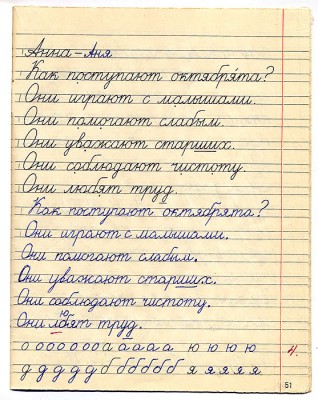 Анна - Аня
Как поступают октябрята?
Они играют с малышами.
Они помогают слабым.
Они уважают старших.
Они соблюдают чистоту.
Они любят труд.
Как поступают октябрята?
Они играют с малышами.
Они помогают слабым.
Они уважают старших.
Они соблюдают чистоту.
Они лбят труд.
ю
о о о о о о о а а а а а ю ю ю ю
4.
д д д д д б б б б б б я я я я я
51